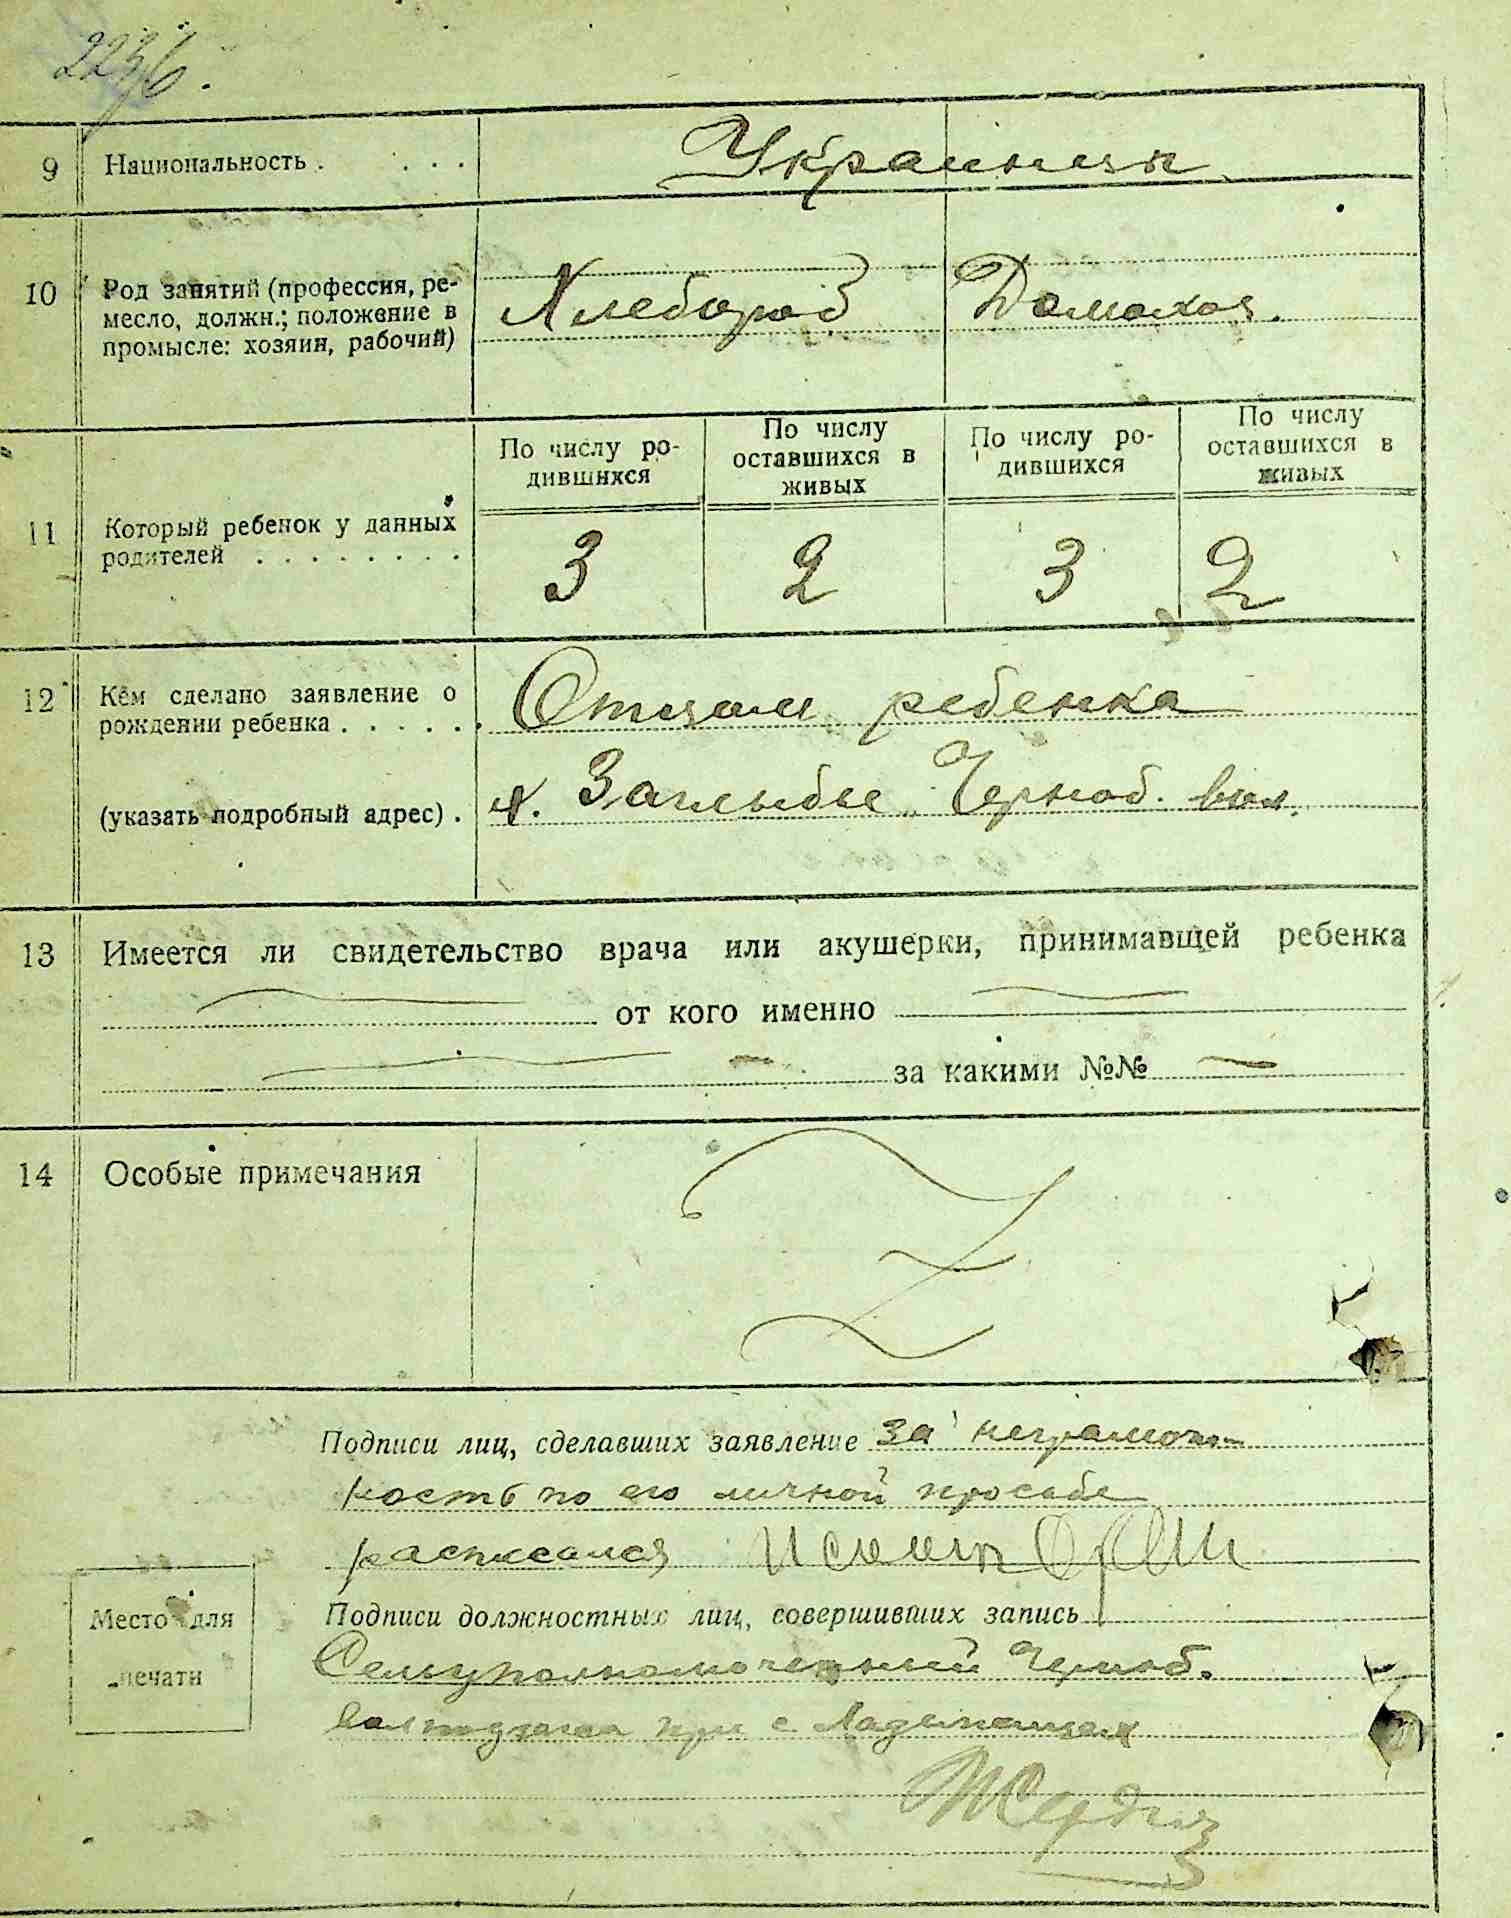 2236.
9 Национальность . . . . Украинцы
10 Род занятий (профессия, ре-
месло, должн.; положение в
промысле: хозяин, рабочий)
Хлебороб Домохоз.
По числу ро-
дившихся
По числу
оставшихся в
живых
По числу ро-
дившихся
По числу
оставшихся в
живых
11 Который ребенок у данных
родителей . . . . . . . .
3 2 3 2
12 Кем сделано заявление о
рождении ребенка . . . . . .
Отцом ребенка
(указать подробный адрес) .
х. Заглыбье Черноб. вол.
13 Имеется ли свидетельство врача или акушерки, принимавщей ребенка
от кого именно
за какими №№ —
14 Особые примечания
Подписи лиц, сделавших заявление за неграмот-
ность по его личной просьбе
расписался
Подписи должностных лиц, совершивших запись
Место для
печати
Сельуполномоченный Черноб.
при с. Ладыжичах